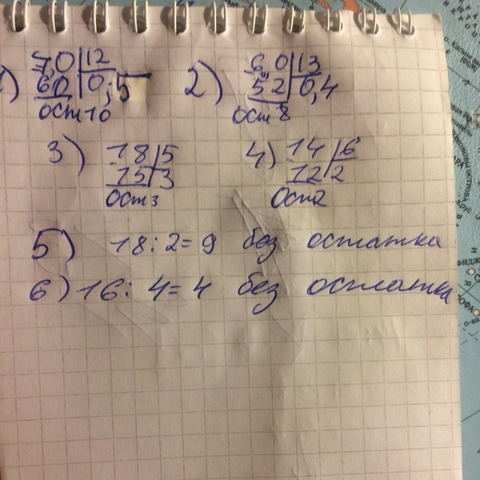 1) 7,0 | 12
60 | 0,5
Ост 10
2) 6,0 | 13
52 | 0,4
Ост 8
3) 18 | 5
15 | 3
Ост 3
4) 14 | 6
12 | 2
Ост 2
5) 18 : 2 = 9 без остатка
6) 16 : 4 = 4 без остатка